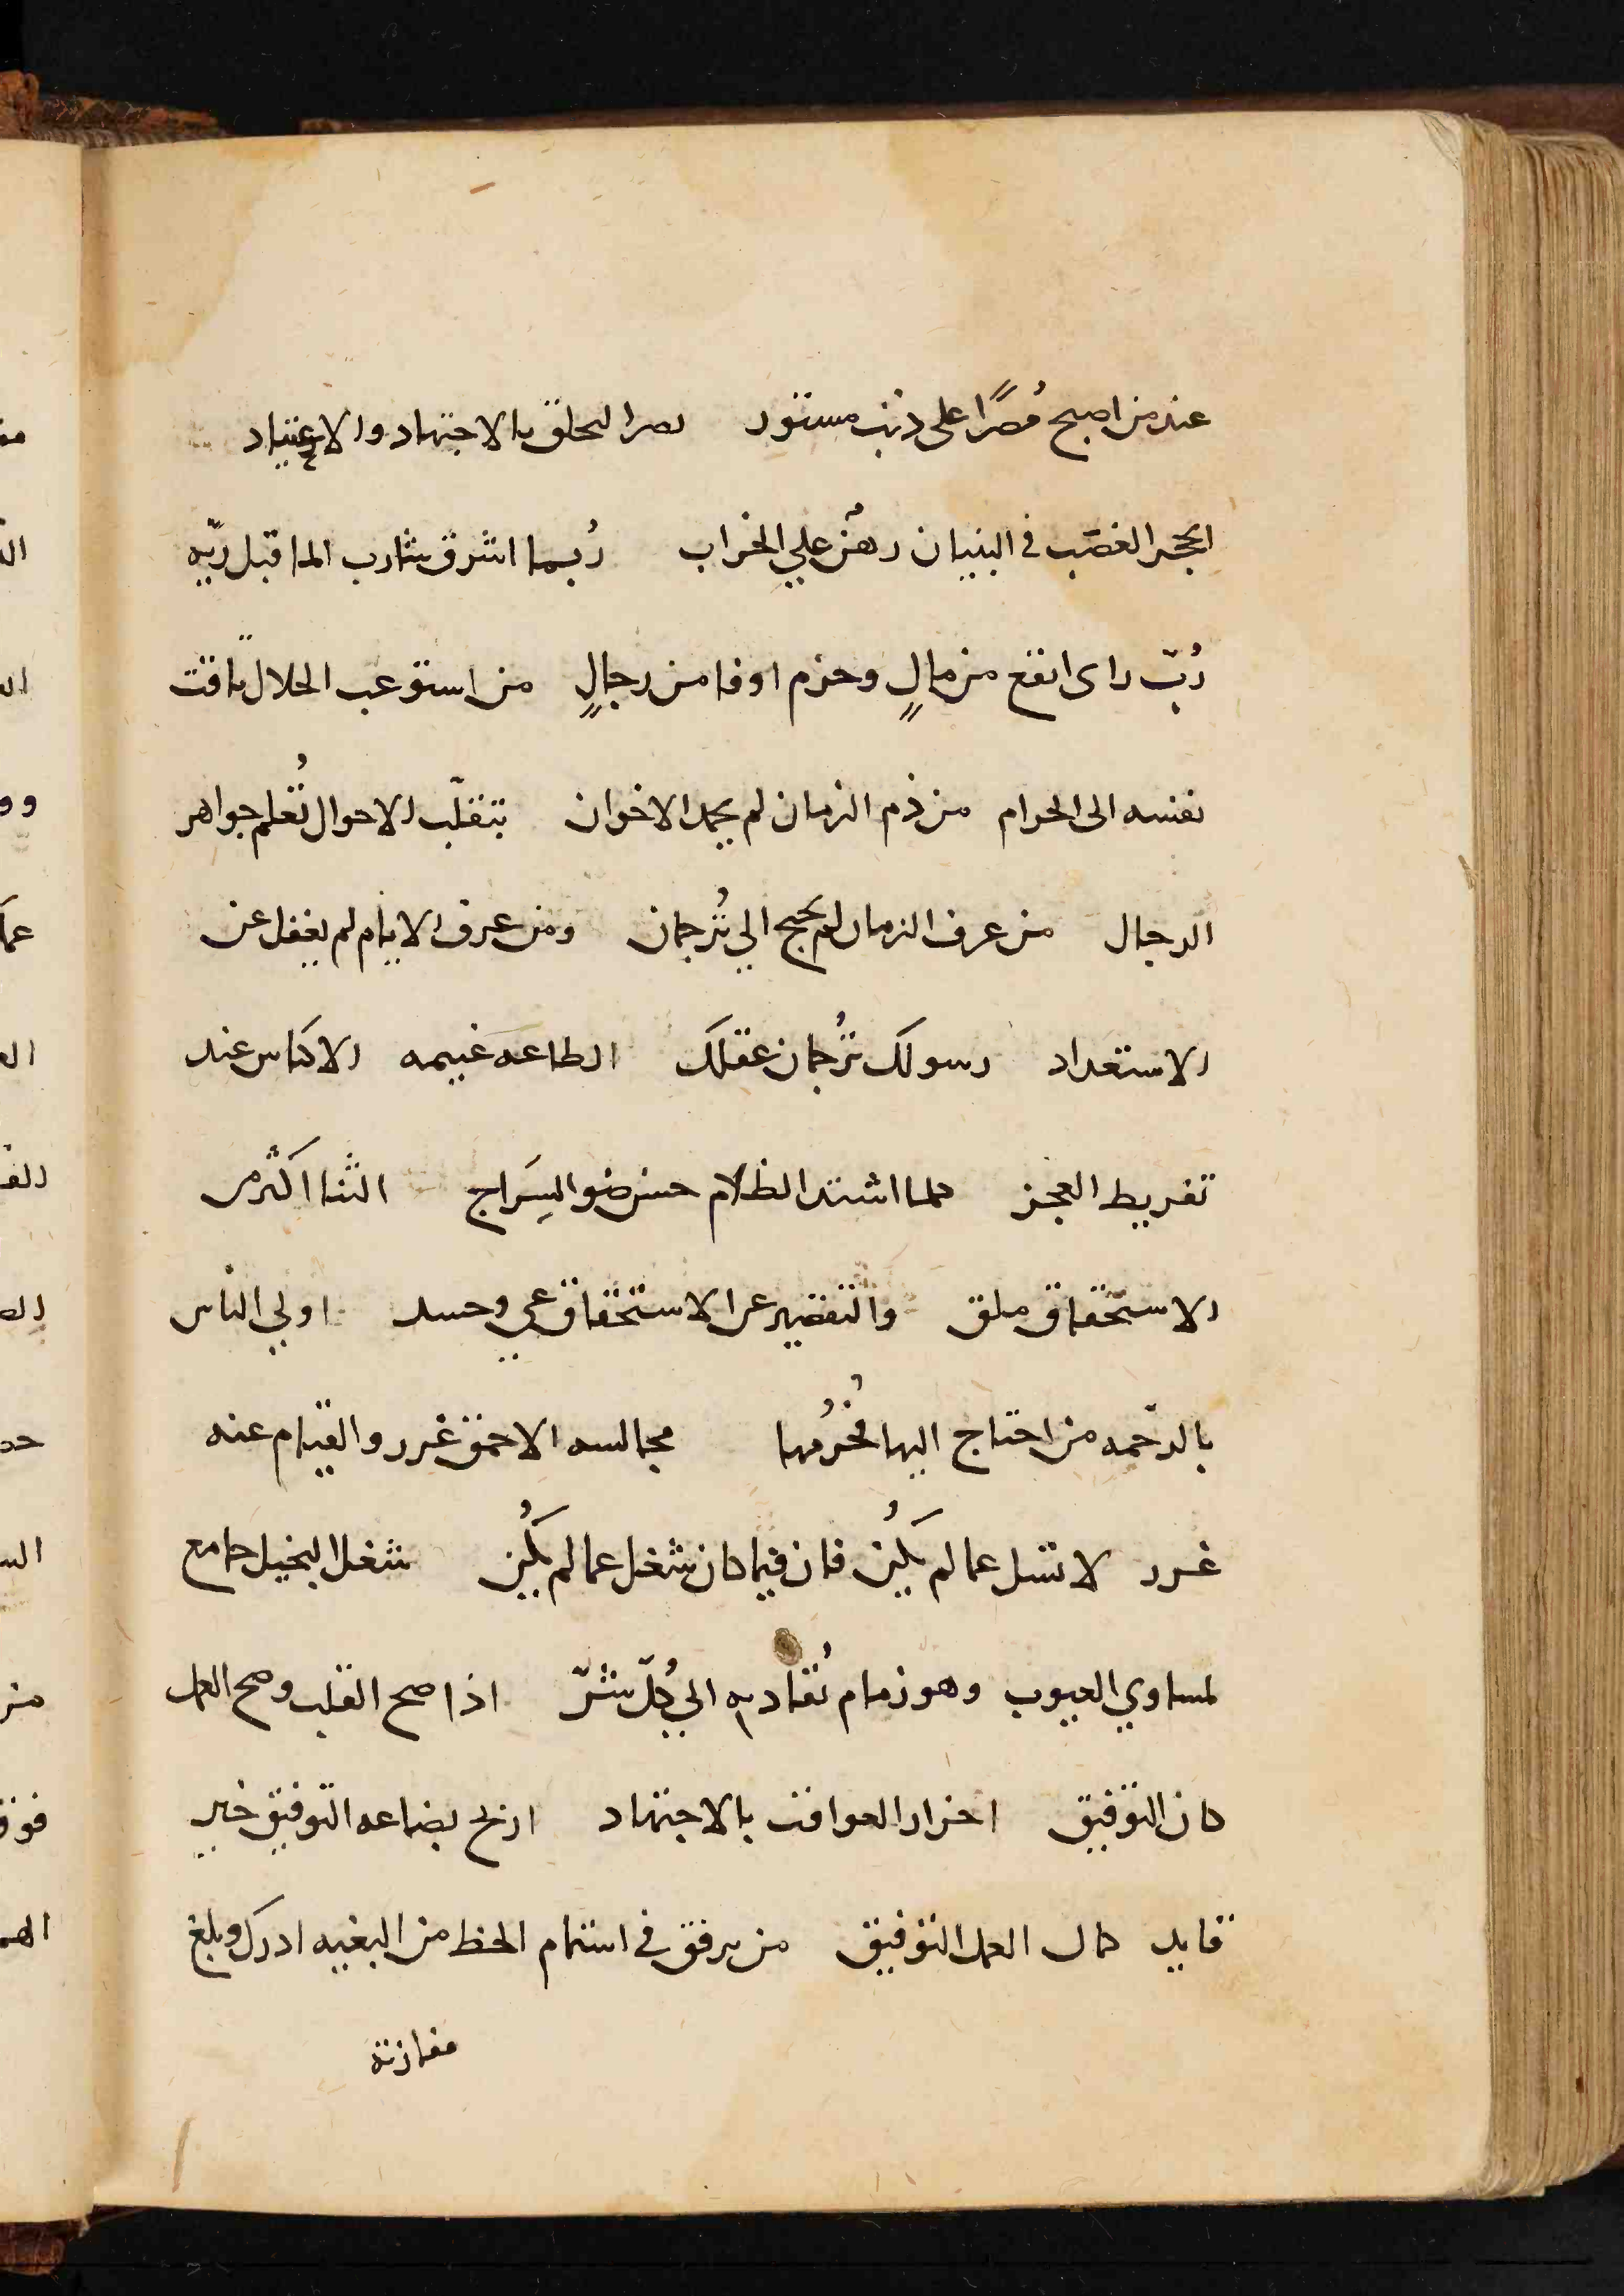 عند من اصبح مُصرًا على ذنب مستور نصر الخلق بالاجتهاد والاعتياد
الحجر الغصَب في البنيان رهن علي الخراب رُبما اشرق شارب الما قبل ريّه
رُبّ راى انفع من مالٍ وحزم اوفا من رجالٍ من استوعب الحلال تاقت
نفسه الى الحرام من ذم الزمان لم يحمد الاخوان بتقلّب الاحوال تُعلم جواهر
الرجال من عرف الزمان لم يحتج الي تُرجمان ومن عرف الايام لم يغفل عن
الاستعداد رسولك تُرجمان عقلك الطاعه غنيمه الاكياس عند
تفريط العجز كلما اشتد الظلام حسن ضو السِرَاج الثنا اكثر من
الاستحقاق ملق والتقصير عن الاستحقاق عي وحسد اولي الناس
بالرّحمه من احتاج اليها فحُرمها مجالسه الاحمق غرر والقيام عنه
غرر لا تسل عما لم يكُن فان فيما كان شغل عما لم يكُن شغل البخيل جامع
لمساوي العيوب وهو زمام تُقاد به الي كُلّ شرّ اذا صح القلب وصح العمل
كان التوفيق احراز العواقب بالاجتهاد اربح بضاعه التوفيق خير
قايد كمال العمل التوفيق من يرفق في استتمام الحظ من البغيه ادرك وبلغ
مفازته